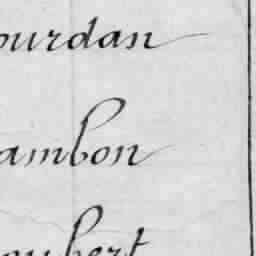 ourdan
ambon
oubert